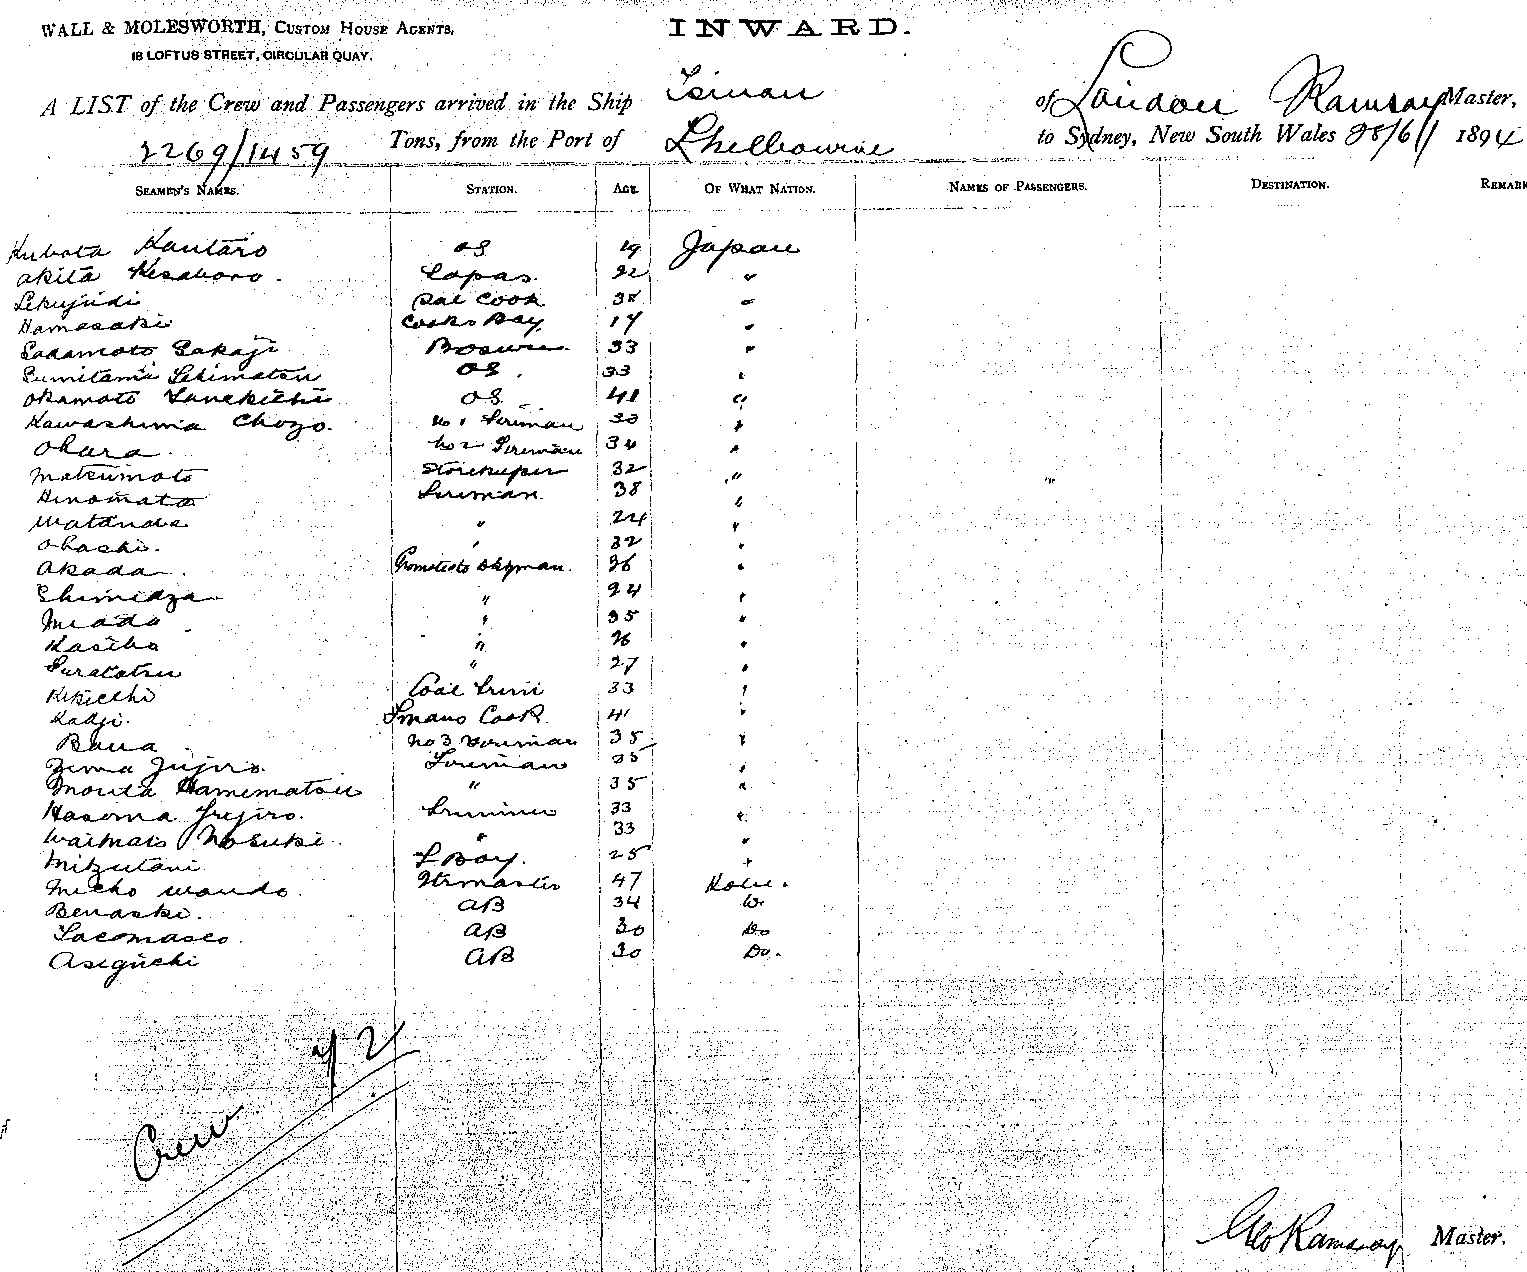 WALL & MOLESWORTH, CUSTOM HOUSE AGENTS,
18 LOFTUS STREET, CIRCULAR QUAY.
INWARD.
A LIST of the Crew and Passengers arrived in the Ship Tsinan of London Ramsay Master,
2269/1459 Tons, from the Port of to Sydney, New South Wales 28/6/ 1894
SEAMEN'S NAMES. STATION. AGE. OF WHAT NATION. NAMES OF PASSENGERS. DESTINATION. REMARK
Kubota Kantaro OS 19 Japan
Akita Kesaboro. Lapas. 22 "
Cook 38 "
Hamasaki Cooks Boy 17 "
Sadamoto Sakaji Boswn 33 "
Sumitami Sekimatsu OS. 33 "
Okamoto Tunekichi OS 41 "
Kawashima Chozo. No 1 Fireman 30 "
Ohara. No 2 Fireman 34 "
Matsumoto Storekeeper 32 "
Hinomata Fireman 38 "
Watanabe " 24 "
Ohashi. " 32 "
Akada. 26 "
Shimidza " 24 "
Miada " 35 "
Kasiba " 26 "
" 27 "
Kikichi Coal Trim 33 "
Kadji. Cook 41 "
Bana No 3 Fireman 35 "
Zima Jujiro. Fireman 35 "
Morita Hamematsu " 35 "
Hasoma Trimmer 33 "
Nosuki " 33 "
Mizutani F Boy. 25 "
Micho Wando. 47 Kobe.
Benaski. AB 34 Do
Tacomasco. AB 30 Do
Aseguchi AB 30 Do.
Crew 72
Geo Ramsay Master.